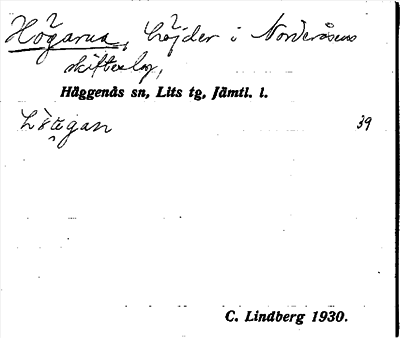 Högarna, höjder i Norderåsens
skifteslag,
Häggenås sn, Lits tg, Jämtl. l.
39
C. Lindberg 1930.